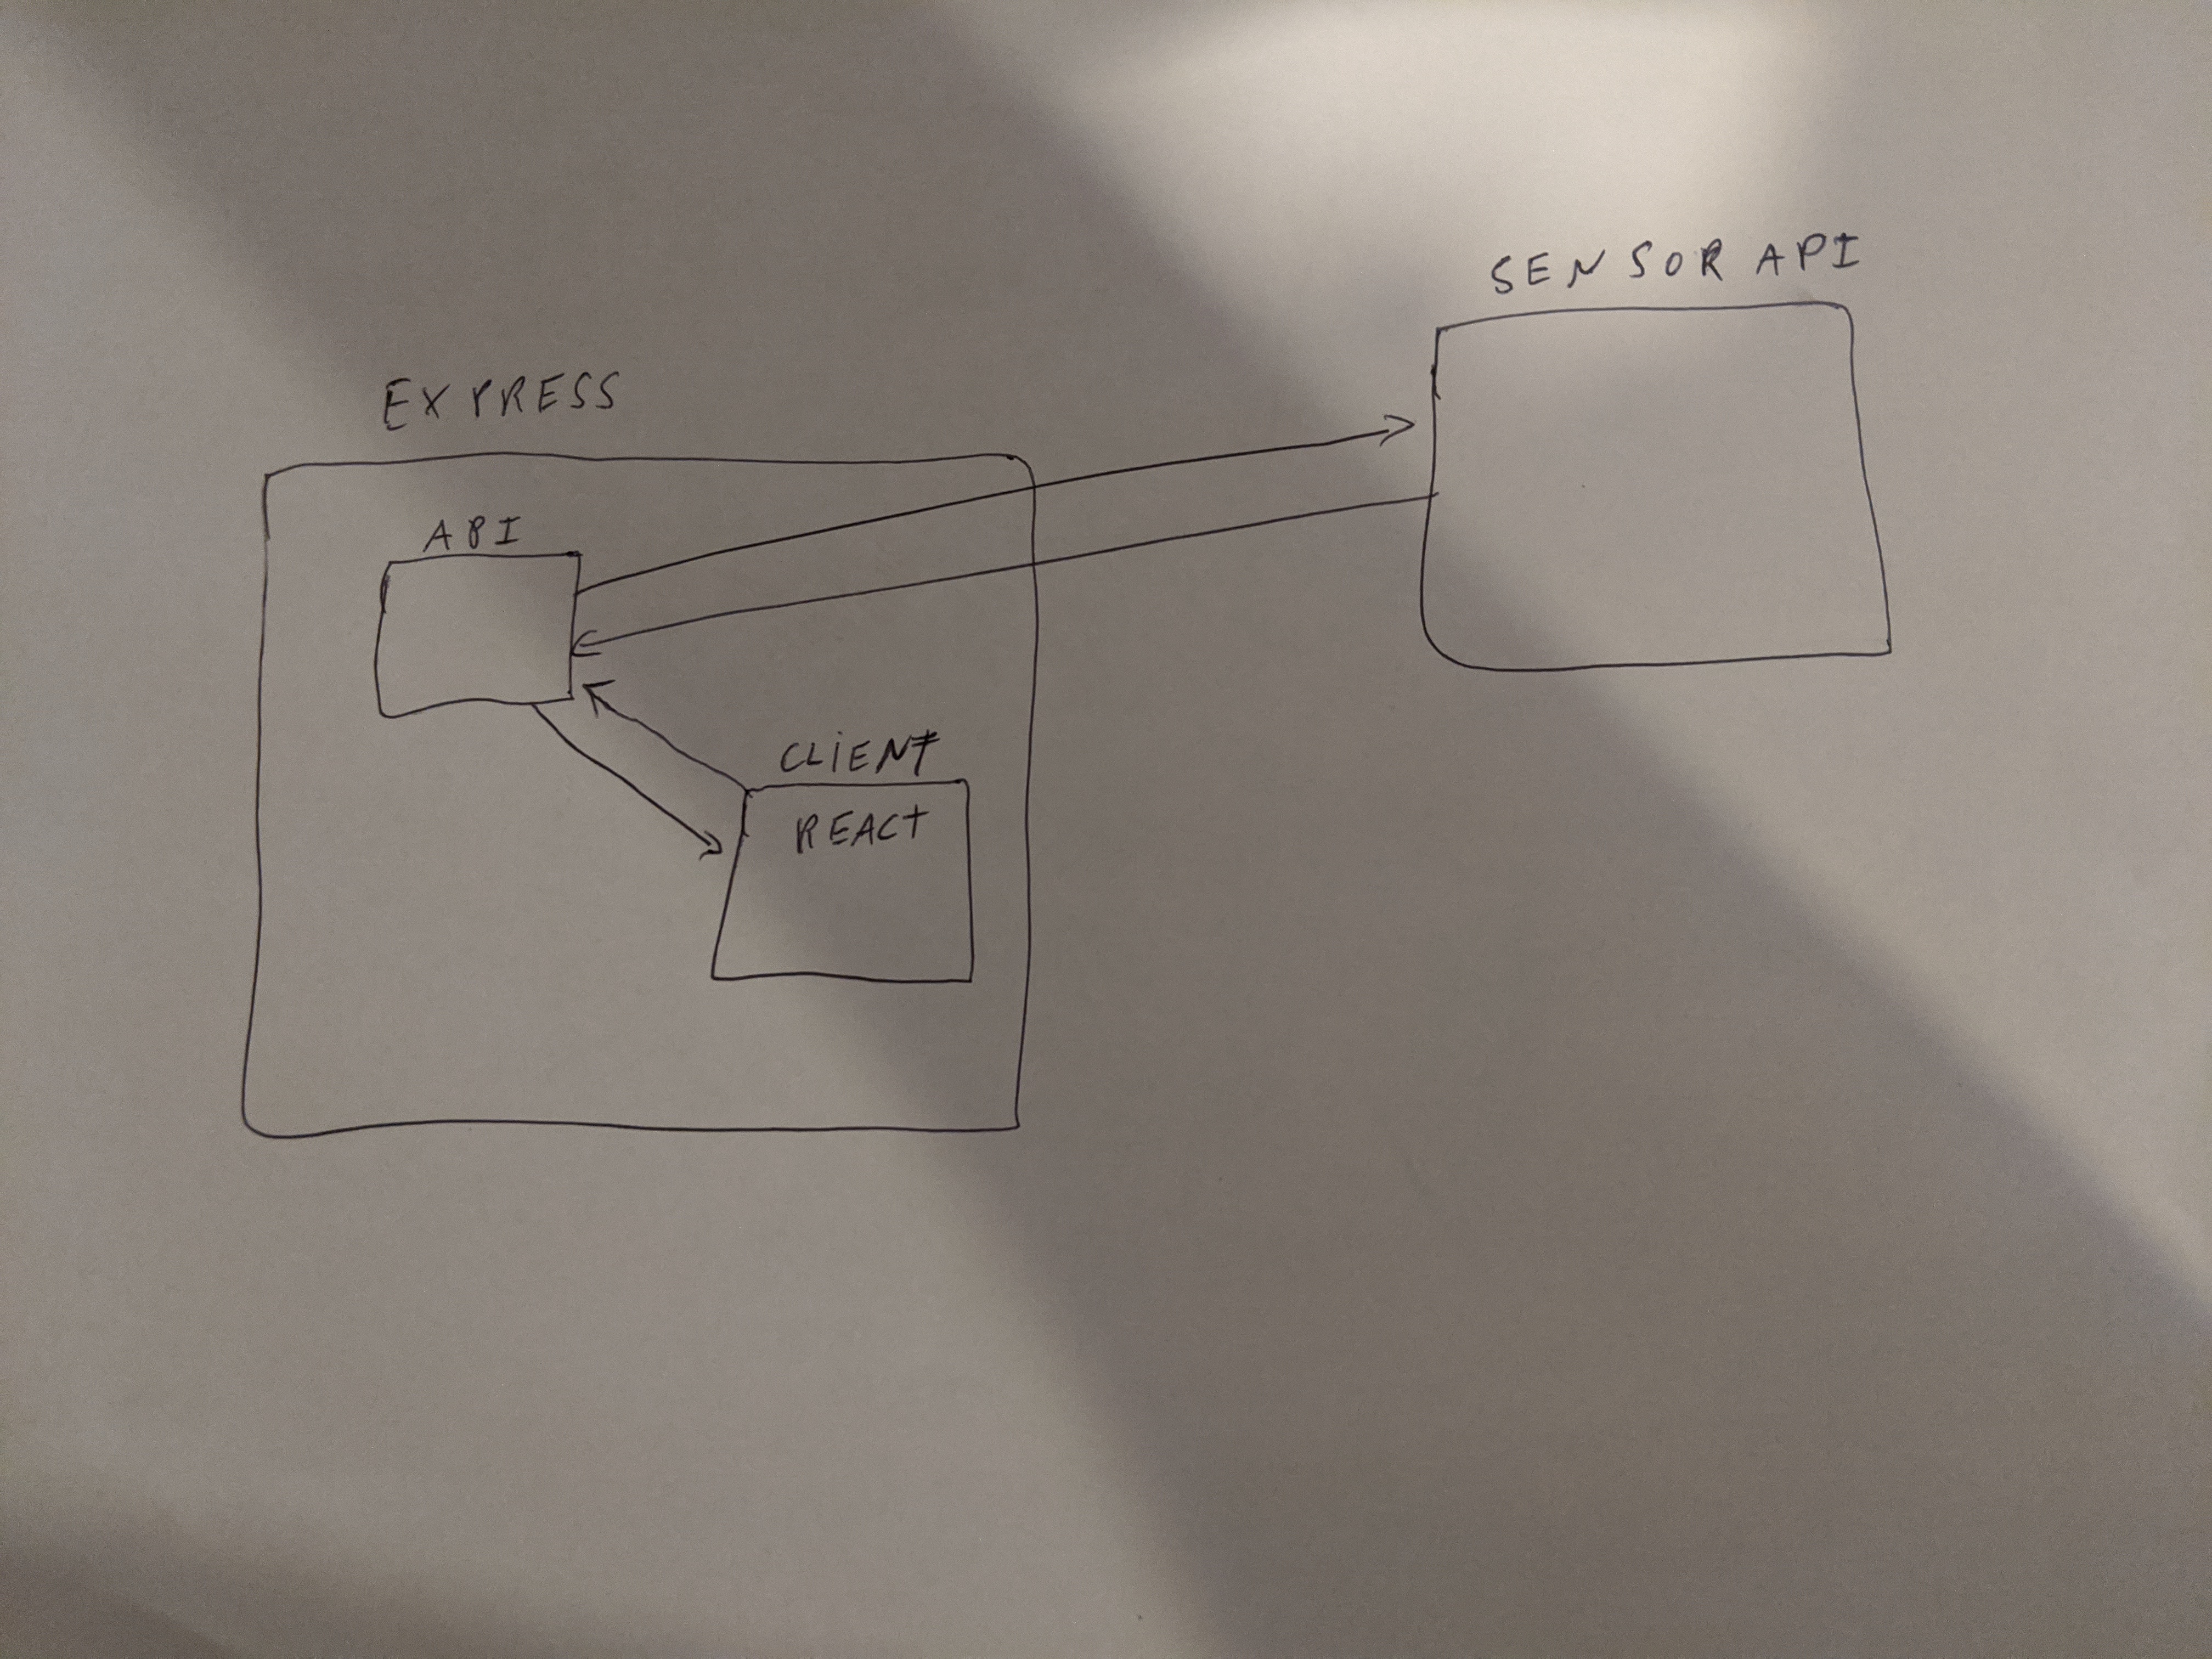 SENSOR API
EXPRESS
API
CLIENT
REACT